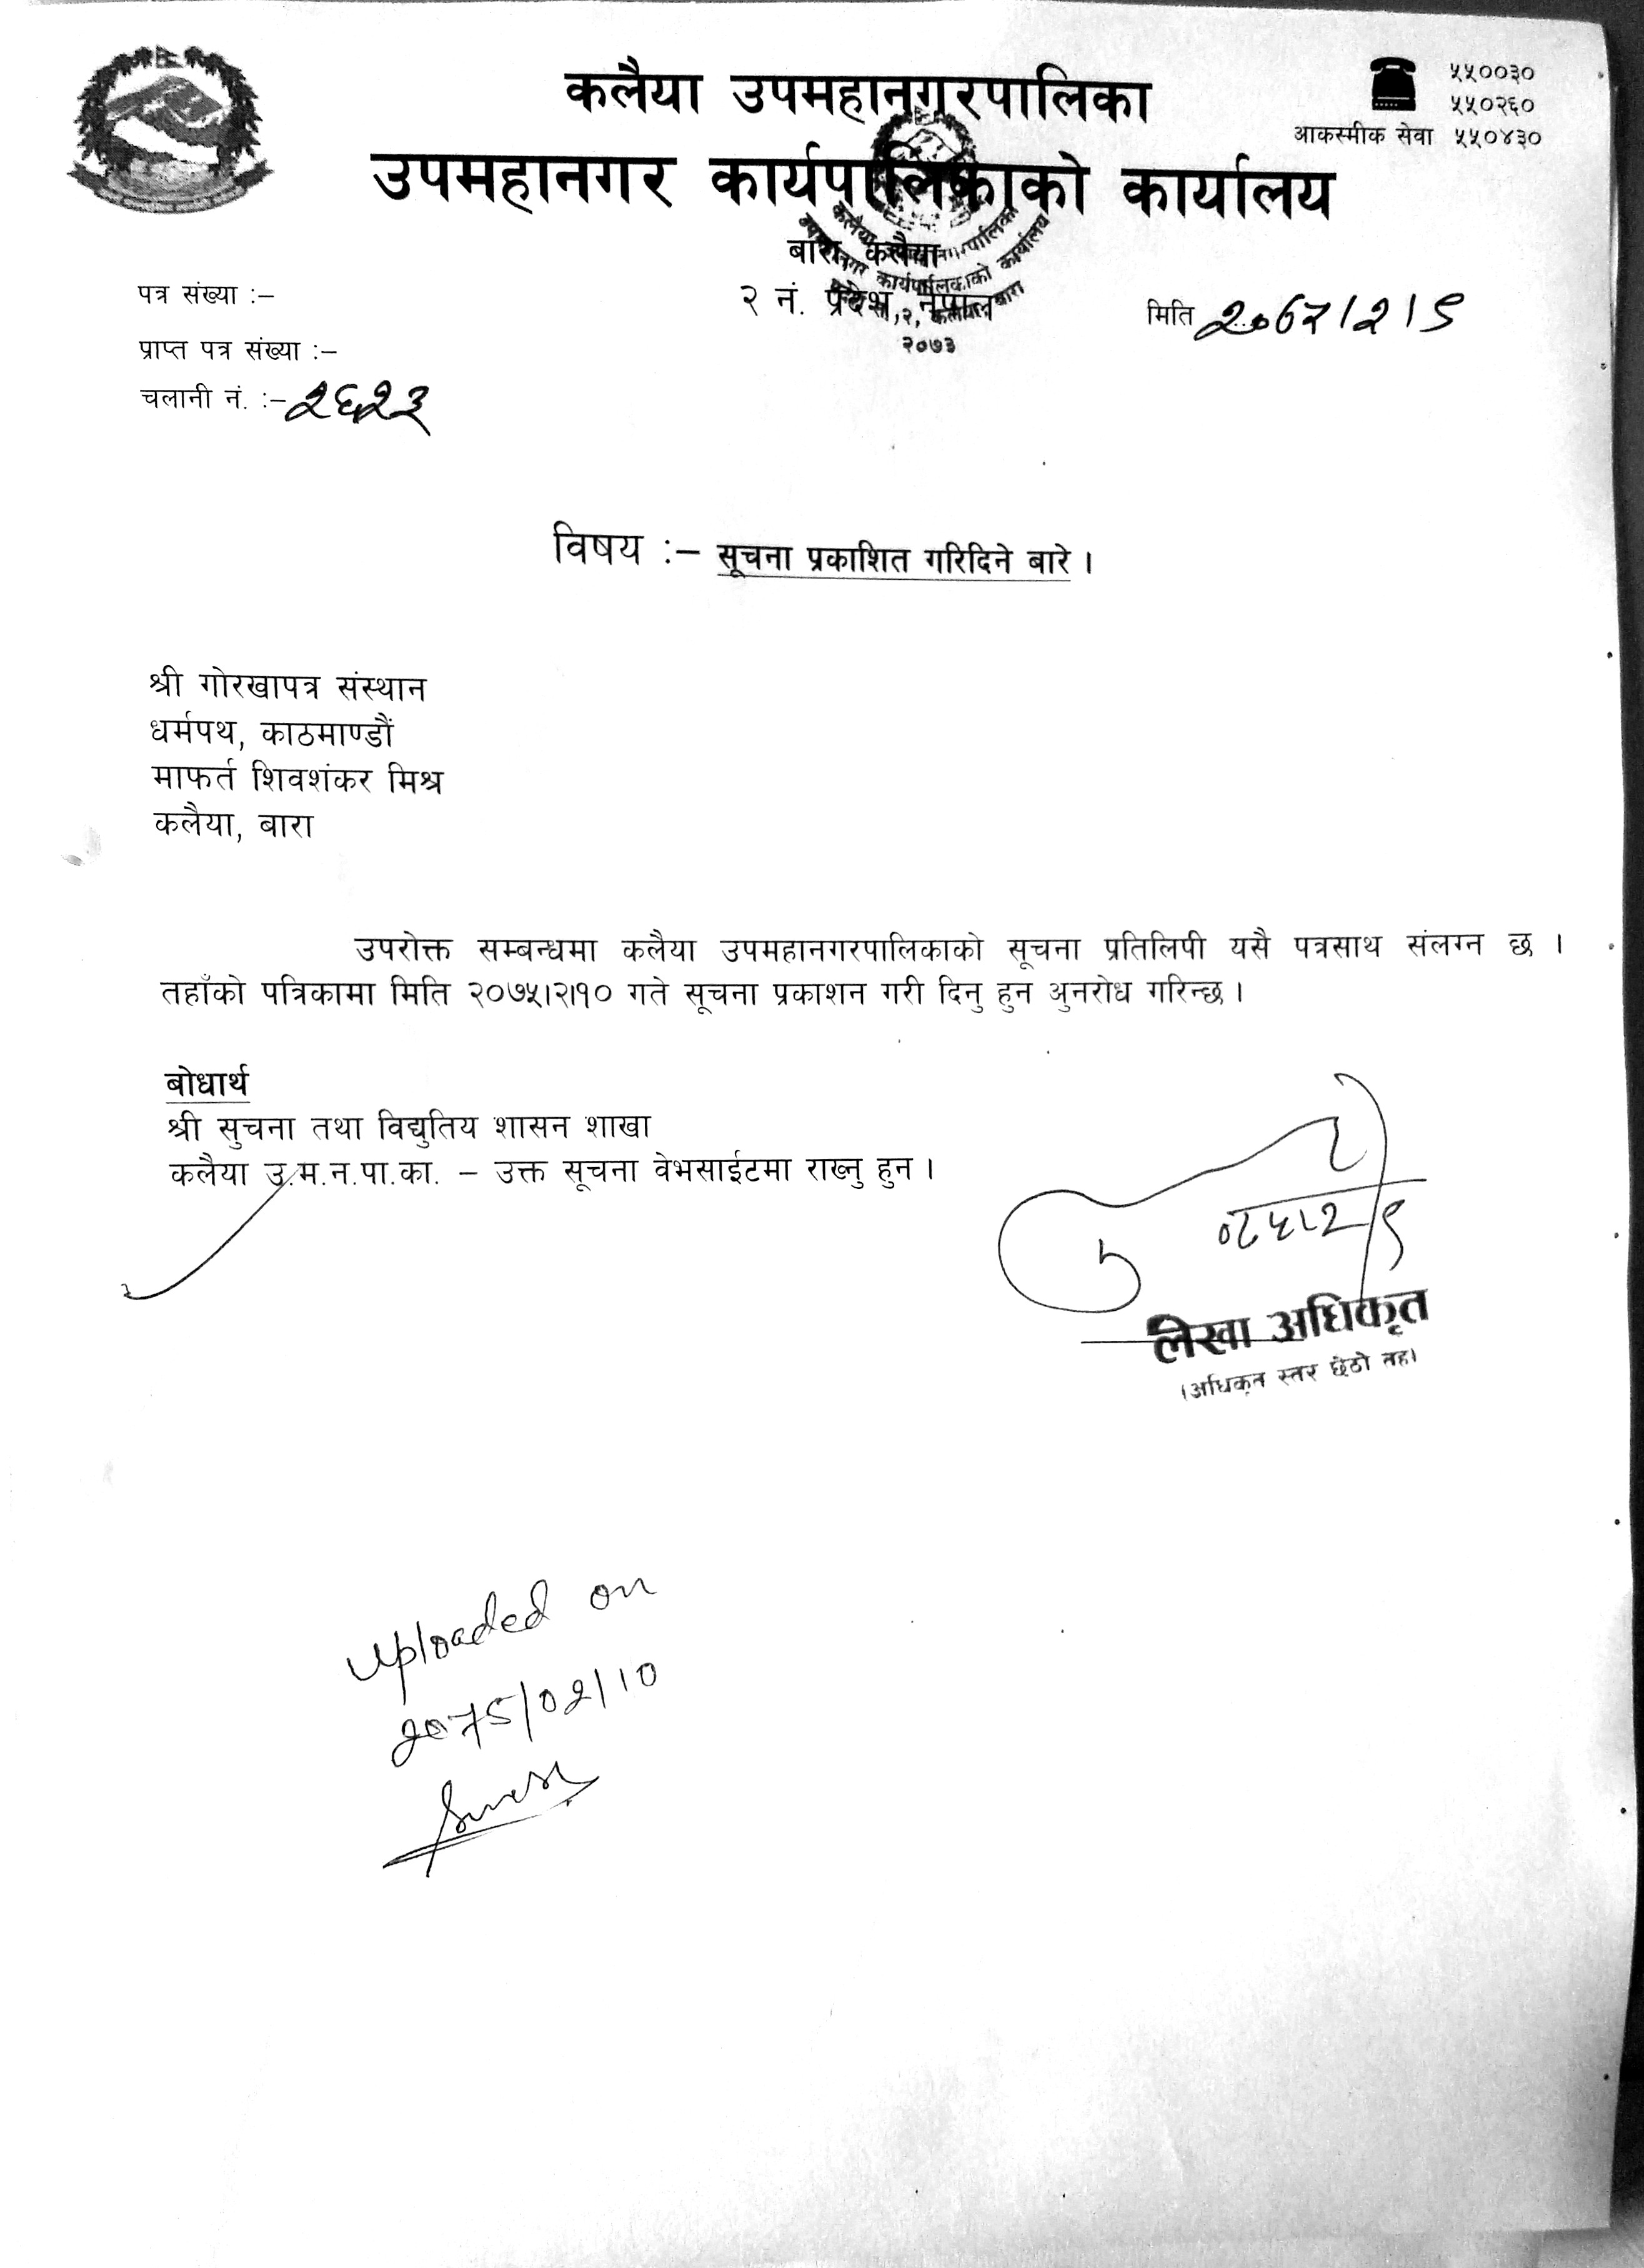 कलैया उपमहानगरपालिका
उपमहानगर कार्यपालिकाको कार्यालय
बारा, कलैया
२ नं. प्रदेश, नेपाल
५५००३०
५५०२६०
आकस्मीक सेवा ५५०४३०
कलैया उपमहानगरपालिका
उपमहानगर कार्यपालिकाको कार्यालय
२०७३
पत्र संख्या :–
मिति २०७५।२।९
प्राप्त पत्र संख्या :–
चलानी नं. :– २६२३
विषय :– सूचना प्रकाशित गरिदिने बारे ।
श्री गोरखापत्र संस्थान
धर्मपथ, काठमाण्डौं
मार्फत शिवशंकर मिश्र
कलैया, बारा
उपरोक्त सम्बन्धमा कलैया उपमहानगरपालिकाको सूचना प्रतिलिपी यसै पत्रसाथ संलग्न छ ।
तहाँको पत्रिकामा मिति २०७५।२।१० गते सूचना प्रकाशन गरी दिनु हुन अुनरोध गरिन्छ ।
बोधार्थ
श्री सुचना तथा विद्युतिय शासन शाखा
कलैया उ.म.न.पा.का. – उक्त सूचना वेभसाईटमा राख्नु हुन ।
लेखा अधिकृत
(अधिकृत स्तर छैठौ तह)
Uploaded on
2075/02/10